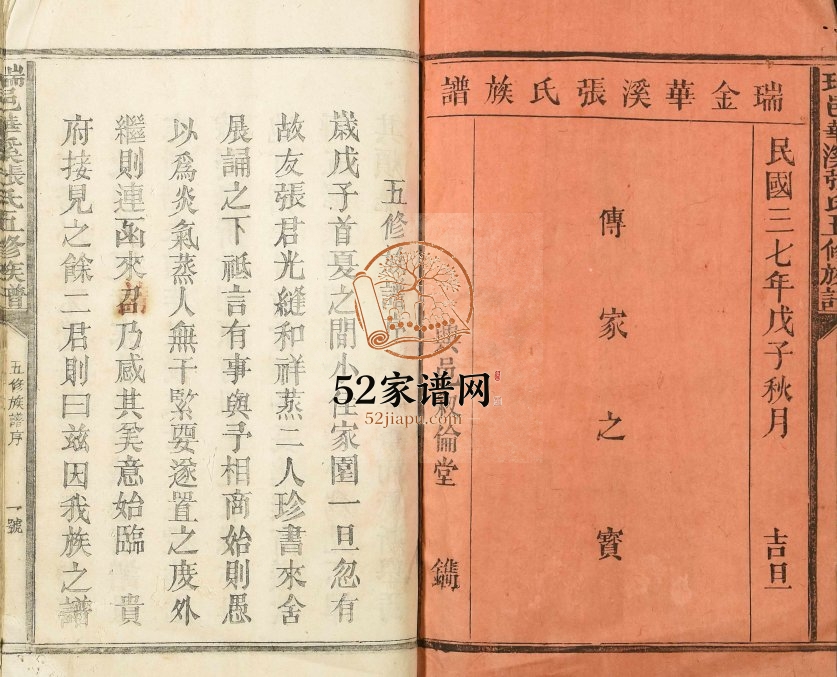 瑞金華溪張氏族譜
民國三七年戊子秋月 吉旦
傳家之寶
興邑敘倫堂 鐫
五修族譜
歲戊子首夏之間小住家園一旦忽有
故友張君光縫和祥蒸二人珍書來舍
展誦之下祗言有事與予相商始則愚
以爲炎氣蒸人無干緊要遂置之度外
繼則連函來召乃感其美意始臨 貴
府接見之餘二君則曰茲因我族之譜
瑞邑華溪張氏五修族譜
五修族譜序
一號
52家谱网
52jiapu.com